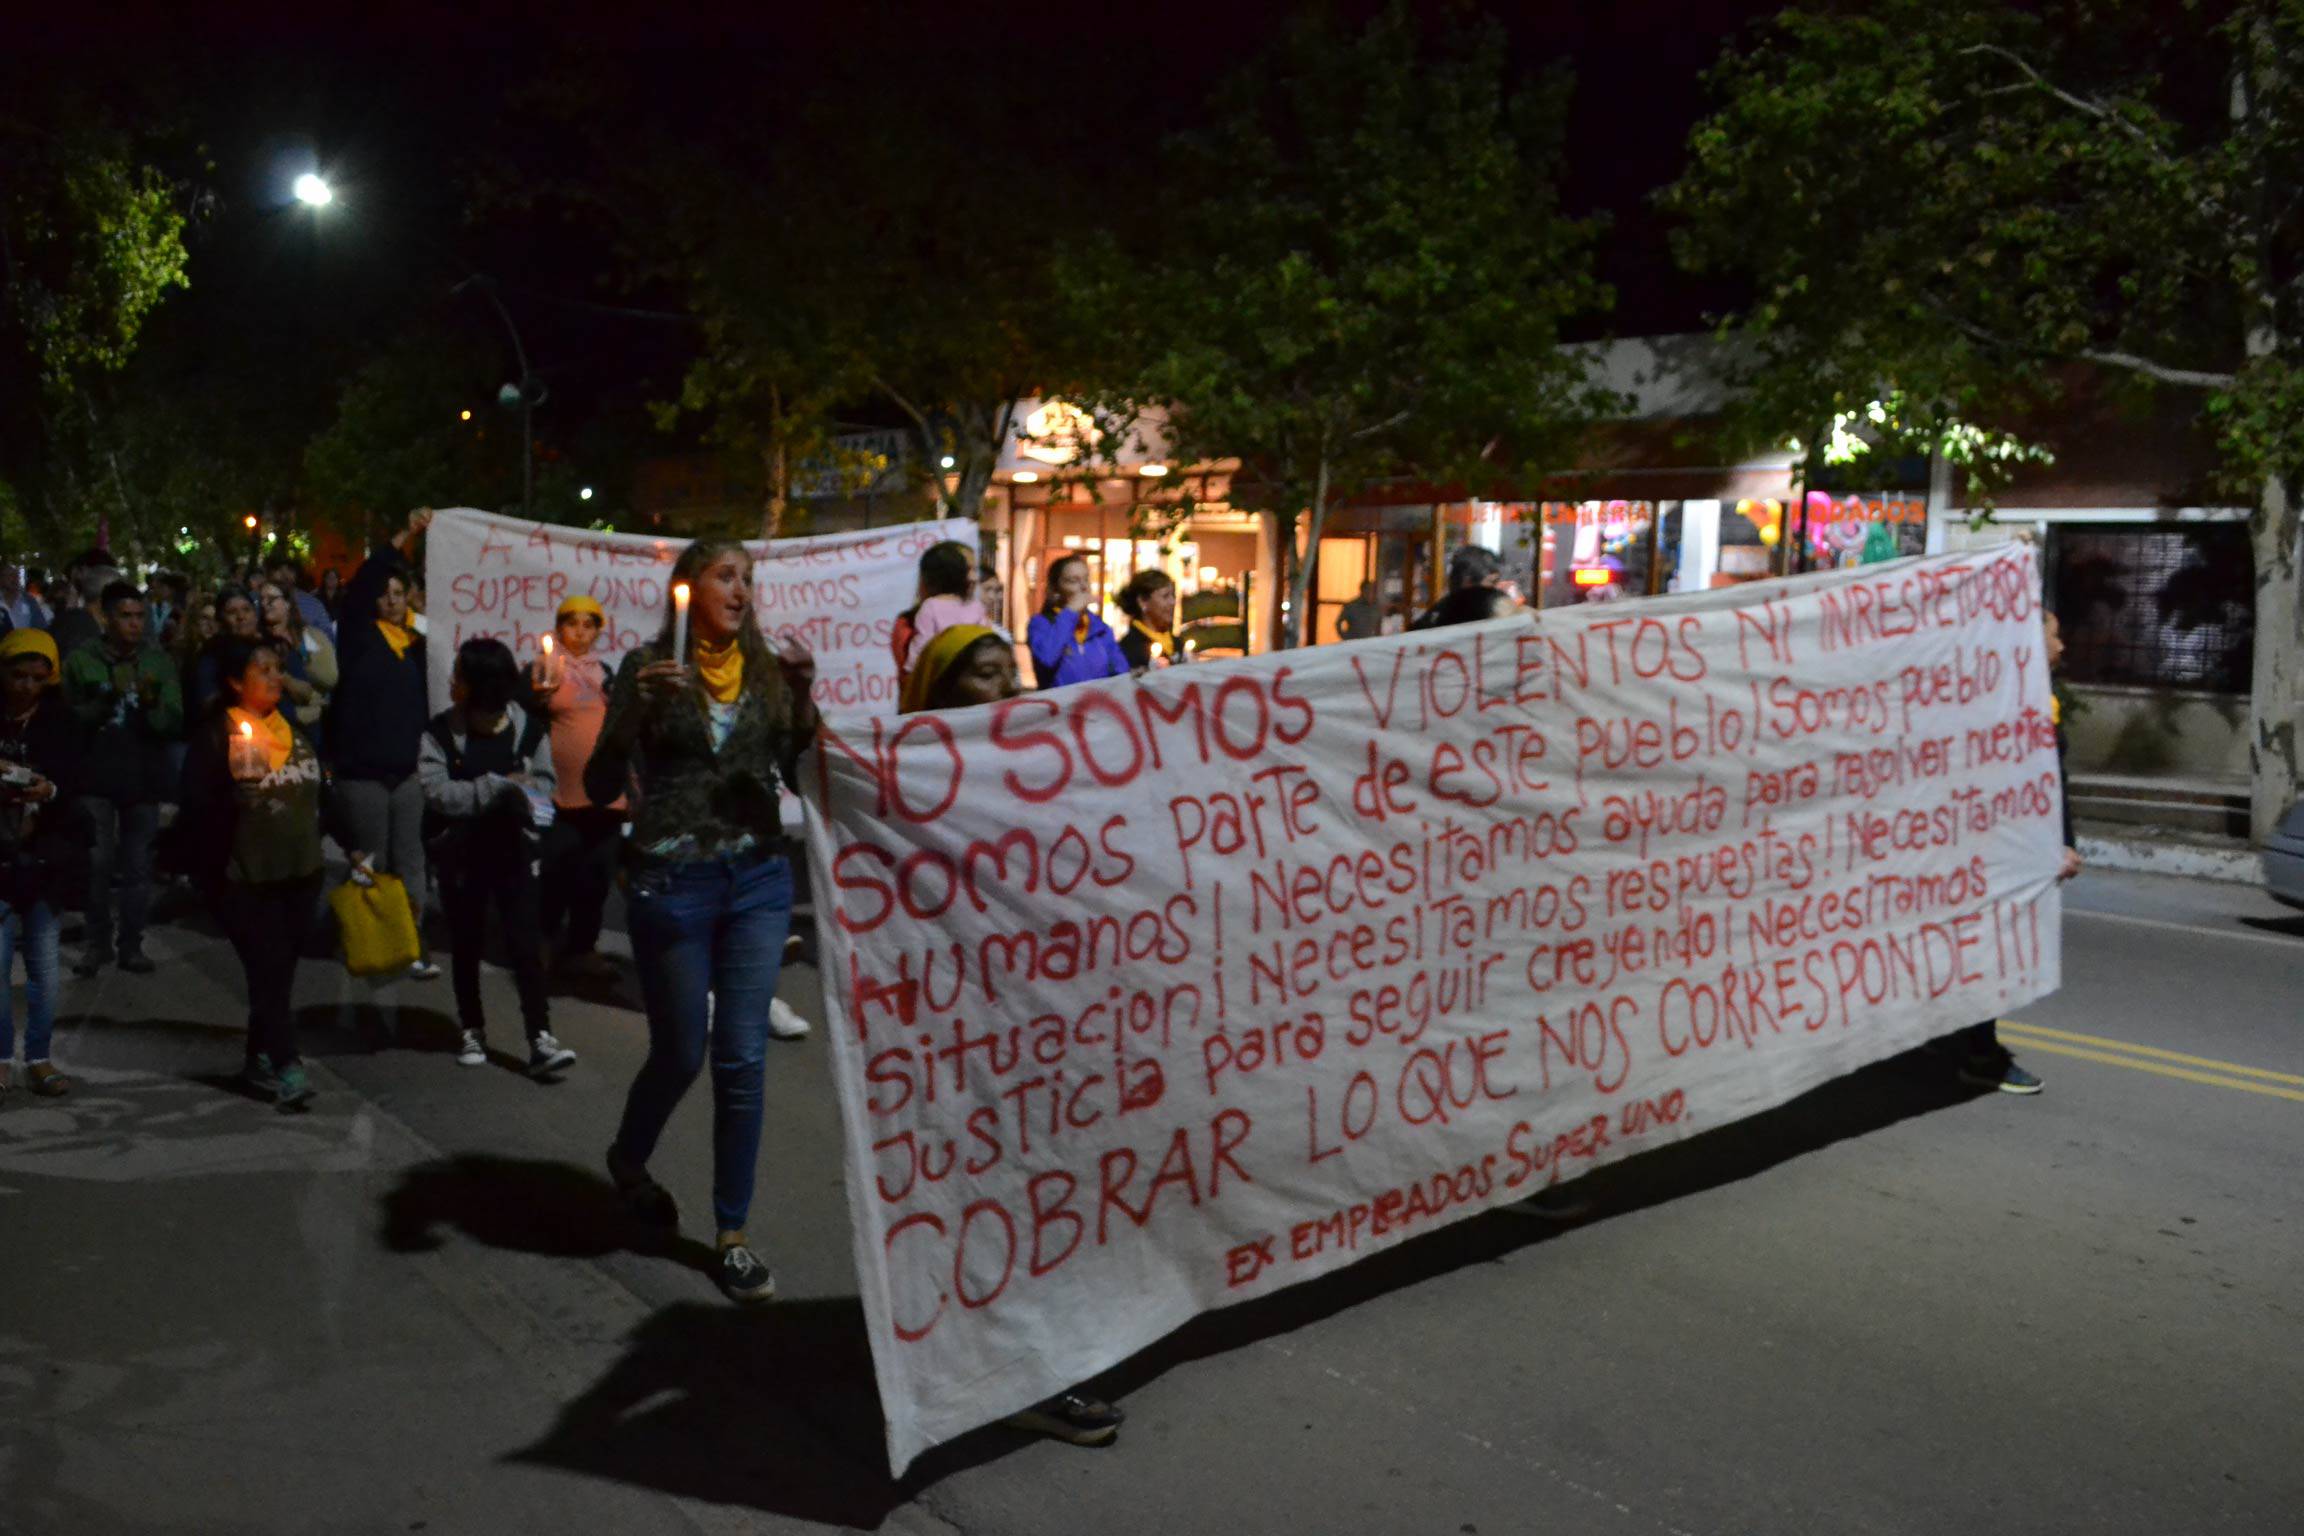 A 4 meses cierre del
SUPER UNO
NO SOMOS VIOLENTOS NI IRRESPETUOSOS
SOMOS PARTE de este PUEBLO! SOMOS PUEBLO Y
HUMANOS! NECESITAMOS AYUDA PARA RESOLVER NUESTRA
SITUACION! NECESITAMOS RESPUESTAS! NECESITAMOS
JUSTICIA PARA SEGUIR CREYENDO! NECESITAMOS
COBRAR LO QUE NOS CORRESPONDE!!!
EX EMPLEADOS SUPER UNO.